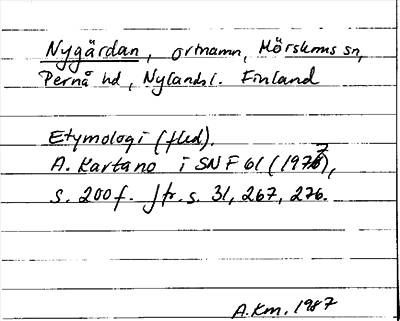 Nygårdan, ortnamn, Mörskoms sn,
Pernå hd, Nylands l. Finland
Etymologi (fled).
A. Kartano i SNF 61 (1977),
s. 200 f. Jfr. s. 31, 267, 276.
A.Km. 1987